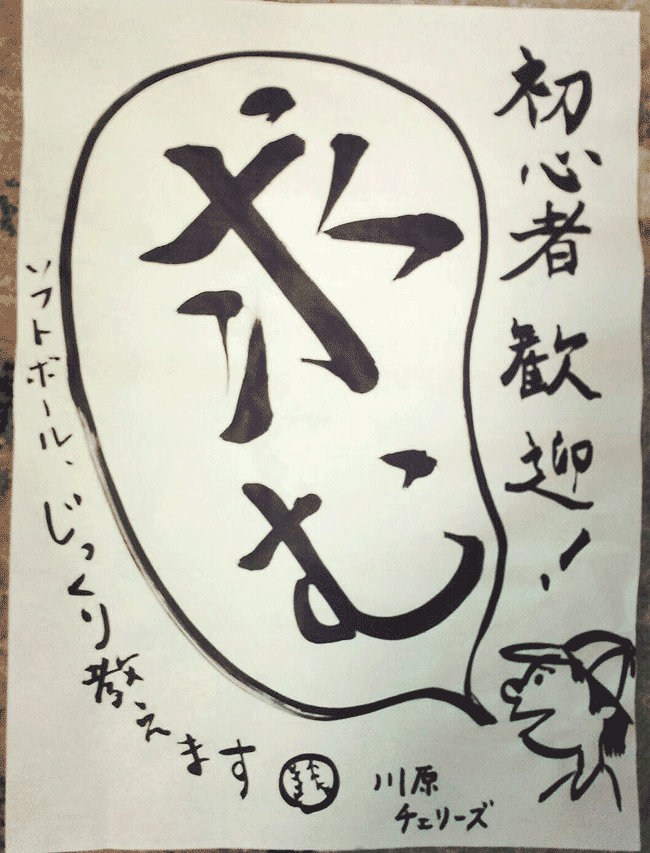 初心者歓迎!
求む
ソフトボール、じっくり教えます
川原
チェリーズ